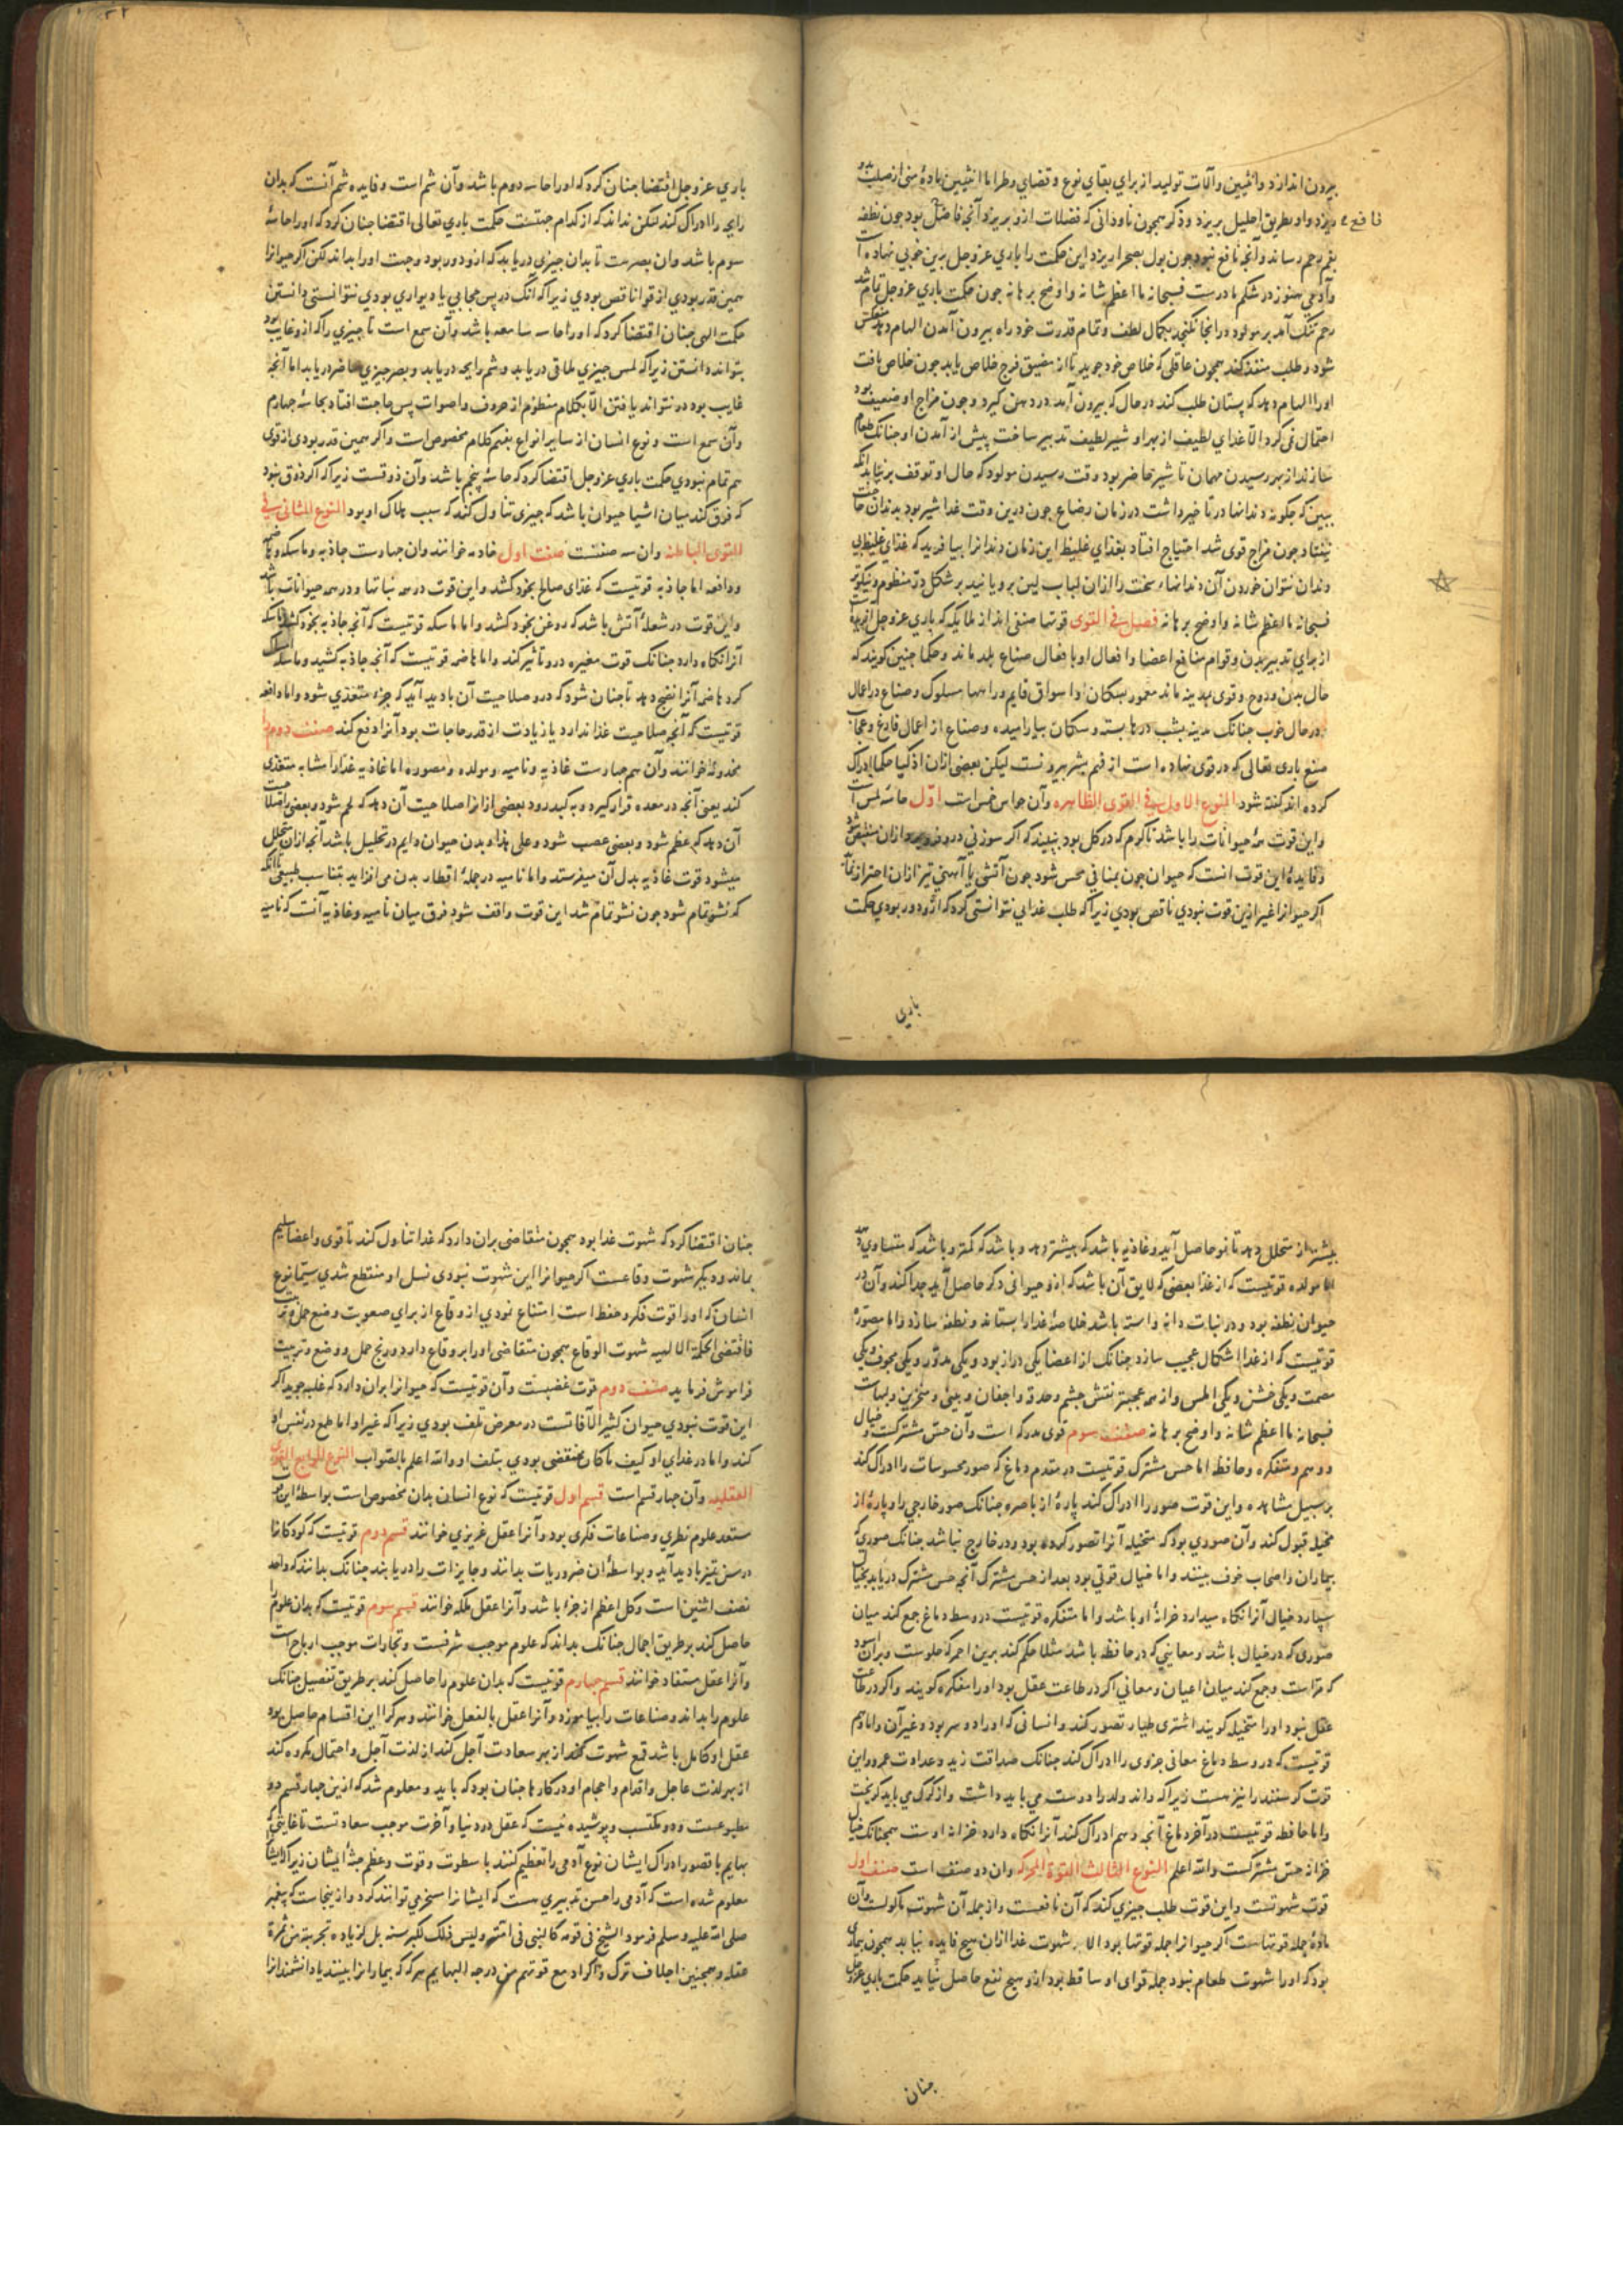 بیرون اندازد وانثیین وآلات تولید از برای بقای نوع و قضای وطر اما انثیین مادهٔ منی از صلب بدو
ریزد و او بطریق احلیل بریزد و ذکر همچون ناودانی که فضلات ازو بریزد آنچه فاضل بود چون نطفه
نافع
بفم رحم رساند وآنچه نافع نبود چون بول بصحرا ریزد این حکمت را باری عزوجل برین خوبی نهاده است
وآدمی هنوز در شکم مادرست فسبحانه ما اعظم شانه واوضح برهانه چون حکمت باری عزوجل تمام شد
رحم تنک آمد بر مولود در انجا نکنجد بکمال لطف و تمام قدرت خود راه بیرون آمدن الهام دهد منعکس
شود و طلب منفذ کند همچون عاقلی که خلاص خود جوید تا از مضیق فرج خلاص یابد چون خلاص یافت
اورا الهام دهد که پستان طلب کند در حال که بیرون آید در دهن کیرد و چون مزاج او ضعیف بود
احتمال نمی کرد الا غذای لطیف از بهر او شیر لطیف تدبیر ساخت پیش از آمدن او چنانک طعام
سازند از بهر رسیدن مهمان تا شیر حاضر بود وقت رسیدن مولود که حال او توقف برنتابد آنکه
ببین که چکونه دندانها در تاخیر داشت در زمان رضاع چون درین وقت غذا شیر بود بدندان حاجت
نیفتاد چون مزاج قوی شد احتیاج افتاد بغذای غلیظ این زمان دندانرا بیافرید که غذای غلیظ بی
دندان نتوان خوردن آن دندانهاء سخت را ازان لباب لین برویانید بر شکل در منظوم ونیکوتر
فسبحانه ما اعظم شانه واوضح برهانه فصل فی القوی قوتها صنفی اند از ملایکه که باری عزوجل آفریده است
از برای تدبیر بدن و قوام منافع اعضا وافعال او بافعال صناع بلد ماند و حکما چنین کویند که
حال بدن و روح و قوی بمدینه ماند معمور بسکان او اسواق قایم وراهها مسلوک و صناع در اعمال
در حال خوب چنانک مدینه بشب درها بسته و سکان بیارامیده و صناع از اعمال فارغ وعجایب
صنع باری تعالی که در قوی نهاده است از فهم بشر بیرونست لیکن بعضی ازان اذکیا حکما ادراک
کرده اند کفته شود النوع الاول فی القوی الظاهره وآن حواس خمس است اول حاسه لمس است
واین قوت همه حیوانات را باشد تا کرم که در کل بود ببیند که اکر سوزنی درو فرو برد ازان منقبض شود
و فایدهٔ این قوت آنست که حیوان چون بمنافی محس شود چون آتش یا آهنی تیز ازان احتراز نماید
اکر حیوانرا غیر ازین قوت نبودی ناقص بودی زیرا که طلب غدایی نتوانستی کرد که ازو دور بودی حکمت
باری
باری عزوجل اقتضا چنان کرد که اورا حاسه دوم باشد وآن شم است و فایده شم آنست که بدان
رایحه را ادراک کند لیکن نداند که از کدام جهتست حکمت باری تعالی اقتضا چنان کرد که اورا حاسهٔ
سوم باشد وان بصرست تا بدان چیزی دریابد که ازو دور بود وجهت اورا بداند لکن اکر حیوانرا
همین قدر بودی از قوا ناقص بودی زیرا که آنک در پس حجابی یا دیواری بودی نتوانستی دانستن
حکمت الهی چنان اقتضا کرد که اورا حاسه سامعه باشد وآن سمع است تا چیزی را که ازو غایب بود
بتواند دانستن زیرا که لمس چیزی ملاقی دریابد و شم رایحه دریابد و بصر چیزی حاضر دریابد اما آنچه
غایب بود در نتواند یافتن الا بکلام منظوم از حروف و اصوات پس حاجت افتاد بحاسهٔ چهارم
وآن سمع است و نوع انسان از سایر انواع بفهم کلام مخصوص است واکر همین قدر بودی از قوی
هم تمام نبودی حکمت باری عزوجل اقتضا کرد که حاسهٔ پنجم باشد وآن ذوقست زیرا که اکر ذوق نبود
که فرق کند میان اشیا حیوان باشد که چیزی تناول کند که سبب هلاک او بود النوع الثانی فی
القوی الباطنه وان سه صنفست صنف اول خادمه خوانند وان چهارست جاذبه وماسکه وهاضمه
ودافعه اما جاذبه قوتیست که غذای صالح بخود کشد واین قوت در همه نباتها و در همه حیوانات باشد
واین قوت در شعلهٔ آتش باشد که روغن بخود کشد واما ماسکه قوتیست که آنچه جاذبه بخود کشد ماسکه
آنرا نکاه دارد چنانک قوت مغیره درو تاثیر کند واما هاضمه قوتیست که آنچه جاذبه کشید وماسکه امساک
کرد هاضمه آنرا نضج دهد تا چنان شود که درو صلاحیت آن بادید آید که جزء متغذی شود واما دافعه
قوتیست که آنچه صلاحیت غذا ندارد یا زیادت از قدر حاجات بود آنرا دفع کند صنف دوم را
مخدومه خوانند وآن هم چهارست غاذیه و نامیه و مولده و مصوره اما غاذیه غذارا مشابه متغذی
کند یعنی آنچه در معده قرار کیرد و بکبد رود بعضی ازانرا صلاحیت آن دهد که لحم شود و بعضی را صلاحیت
آن دهد که عظم شود و بعضی عصب شود و علی هذا و بدن حیوان دایم در تحلیل باشد آنچه ازان متحلل
میشود قوت غاذیه بدل آن میفرستد واما نامیه در جملهٔ اقطار بدن می افزاید بتناسب طبیعی تا آنکه
که نشو تمام شود چون نشو تمام شد این قوت واقف شود فرق میان نامیه و غاذیه آنست که نامیه
بیشتر از متحلل دهد تا نمو حاصل آید و غاذیه باشد که بیشتر دهد و باشد که کمتر و باشد که متساوی دهد
اما مولده قوتیست که از غذا بعضی که لایق آن باشد که ازو حیوانی دکر حاصل آید جدا کند وآن در
حیوان نطفه بود و در نبات دانه واسته باشد خلاصهٔ غدارا بستاند و نطفه سازد واما مصوره
قوتیست که از غذا اشکال عجیب سازد چنانک از اعضا یکی دراز بود و یکی مدور و یکی مجوف و یکی
مصمت و یکی خشن و یکی املس واز همه عجبتر نقش چشم و حدقه واجفان و بینی و منخرین و لهات
فسبحانه ما اعظم شانه واوضح برهانه صنف سوم قوی مدرکه است وآن حس مشترکست و خیال
و وهم و متفکره و حافظه اما حس مشترک قوتیست در مقدم دماغ که صور محسوسات را ادراک کند
بر سبیل مشاهده و این قوت صور را ادراک کند پارهٔ از باصره چنانک صور خارجی را و پارهٔ از
مخیله قبول کند وآن صوری بود که متخیله آنرا تصور کرده بود و در خارج نباشد چنانک صوری که
بیماران واصحاب خوف بینند واما خیال قوتی بود بعد از حس مشترک آنچه حس مشترک دریابد بخیال
سپارد خیال آنرا نکاه میدارد خزانهٔ او باشد واما متفکره قوتیست در وسط دماغ جمع کند میان
صوری که در خیال باشد و معانیی که در حافظه باشد مثلا حکم کند برین احمر که حلوست و بران اسود
که مرّ است وجمع کند میان اعیان و معانی اکر در طاعت عقل بود اورا مفکره کویند واکر در طاعت
عقل نبود اورا متخیله کویند اشتری طیار تصور کند و انسانی که اورا دو سر بود و غیر آن واما وهم
قوتیست که در وسط دماغ معانی جزوی را ادراک کند چنانک صداقت زید و عداوت عمرو واین
قوت کوسفندرا نیز هست زیرا که داند ولدرا دوست می باید داشت واز کرک می باید کریخت
واما حافظه قوتیست در آخر دماغ آنچه وهم ادراک کند آنرا نکاه دارد خزانه اوست همچنانک خیال
خزانه حس مشترکست والله اعلم النوع الثالث القوة المحرکه وان دو صنف است صنف اول
قوت شهوتست واین قوت طلب چیزی کند که آن نافعست واز جمله آن شهوت ماکولست وآن
مادهٔ جمله قوتهاست اکر حیوانرا جمله قوتها بود الا شهوت غدا ازان هیچ فایده نیابد همچون بیماری
بود که اورا شهوت طعام نبود جمله قوای او ساقط بود ازو هیچ نفع حاصل نیاید حکمت باری عزوجل
چنان
چنان اقتضا کرد که شهوت غدا بود همچون متقاضی بران دارد که غدا تناول کند تا قوی واعضا سلیم
بماند و دیکر شهوت وقاعست اکر حیوانرا این شهوت نبودی نسل او منقطع شدی سیما نوع
انسان که اورا قوت فکر و حفظ است امتناع نمودی از وقاع از برای صعوبت وضع حمل و تربیت
فاقتضی الحکمة الالهیه شهوت الوقاع همچون متقاضی اورا بر وقاع دارد و رنج حمل و وضع و تربیت
فراموش فرماید صنف دوم قوت غضبست وآن قوتیست که حیوانرا بران دارد که غلبه جوید اکر
این قوت نبودی حیوان کثیر الآفاتست در معرض تلف بودی زیرا که غیر او اما طمع در نفس او
کند واما در غدای او کیف ما کان مفضی بودی بتلف او والله اعلم بالصواب النوع الرابع القوی
العقلیه وآن چهار قسم است قسم اول قوتیست که نوع انسان بدان مخصوص است بواسطهٔ این قوت
مستعد علوم نظری و صناعات فکری بود وآنرا عقل غریزی خوانند قسم دوم قوتیست که کودکانرا
در سن تمیز بادید آید و بواسطهٔ ان ضروریات بدانند و جایزات را دریابند چنانک بدانند که واحد
نصف اثنین است و کل اعظم از جزء باشد وآنرا عقل ملکه خوانند قسم سوم قوتیست که بدان علوم را
حاصل کند بر طریق اجمال چنانک بداند که علوم موجب شرفست و تجارات موجب ارباح است
وآنرا عقل مستفاد خوانند قسم چهارم قوتیست که بدان علوم را حاصل کند بر طریق تفصیل چنانک
علوم را بداند و صناعات را بیاموزد وآنرا عقل بالفعل خوانند و هرکرا این اقسام حاصل بود
عقل او کامل باشد قمع شهوت کند از بهر سعادت آجل کند از لذت آجل و احتمال مکروه کند
از بهر لذت عاجل واقدام واحجام او در کارها چنان بود که باید و معلوم شد که ازین چهار قسم دو
مطبوعست و دو مکتسب و پوشیده نیست که عقل در دنیا وآخرت موجب سعادتست تا غایتی که
بهایم با قصور ادراک ایشان نوع آدمی را تعظیم کنند با سطوت و قوت و عظم جثهٔ ایشان زیرا که ایشانرا
معلوم شده است که آدمی را حسن تدبیری هست که ایشانرا مسخر می توانند کرد وازینجاست که پیغمبر
صلی الله علیه وسلم فرمود الشیخ فی قومه کالنبی فی امته ولیس ذلک لکبر سنه بل لزیاده تجربته من ثمرة
عقله وهمچنین اجلاف ترک واکراد مع قربهم من درجه البهایم هرکه که بیمارانرا بینند یا دانشمندانرا